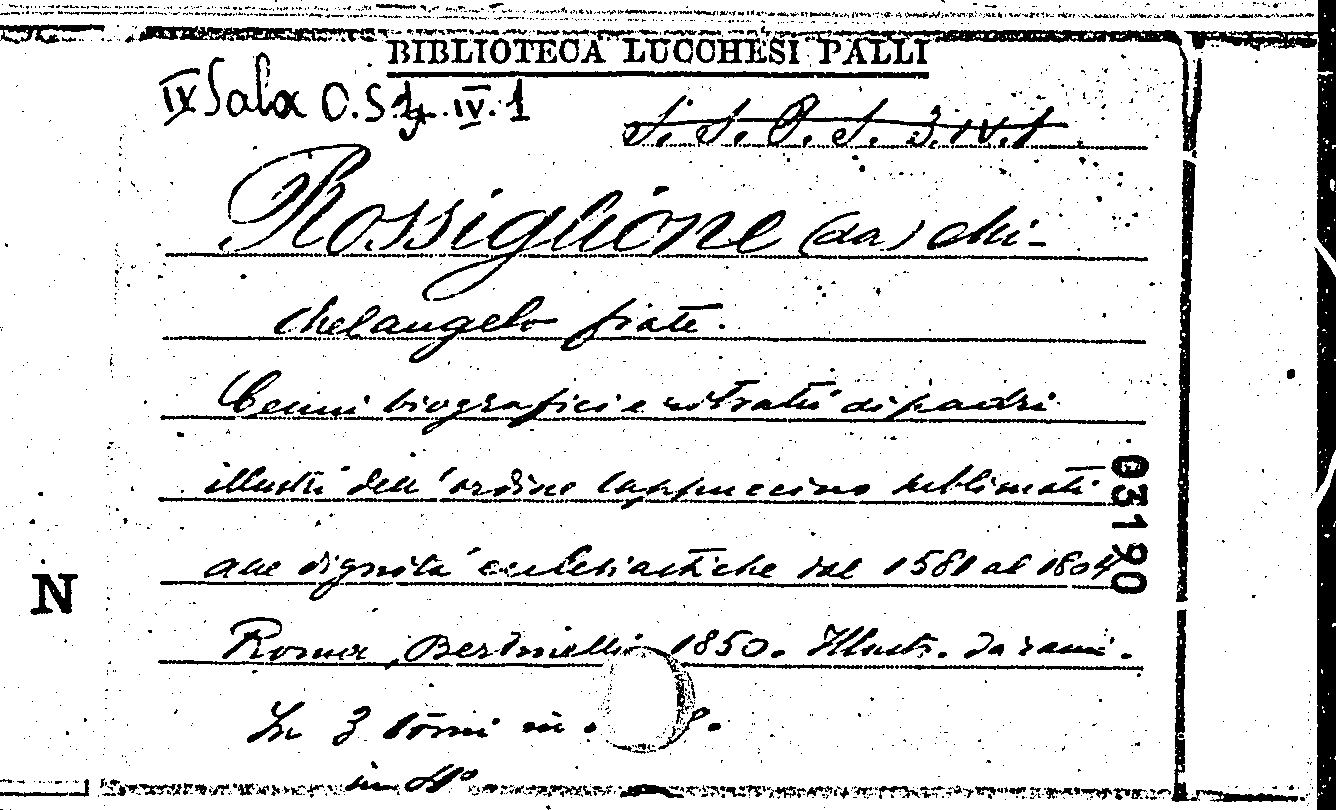 BIBLIOTECA LUCCHESI PALLI
IX Sala O.S. IV. 1
S. S. P. S. 3. IV. 1
Rossiglione (da) Mi-
chelangelo frate.
Cenni biografici e ritratti di padri
illustri dell'ordine Cappuccino sublimati
alle dignità ecclesiastiche dal 1581 al 1804
Roma, 1850. Illustr. da rami.
In 3 tomi in 8.
in 4°
03190
N